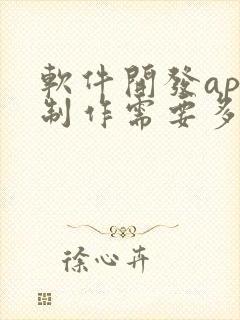 軟件開發ap
制作需要多
徐心卉